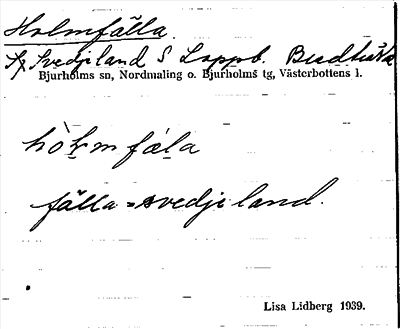 Holmfälla.
Svedjeland S Lappb.
Bjurholms sn, Nordmaling o. Bjurholms tg, Västerbottens l.
hòl̥m fála
fälla = svedjeland.
Lisa Lidberg 1939.